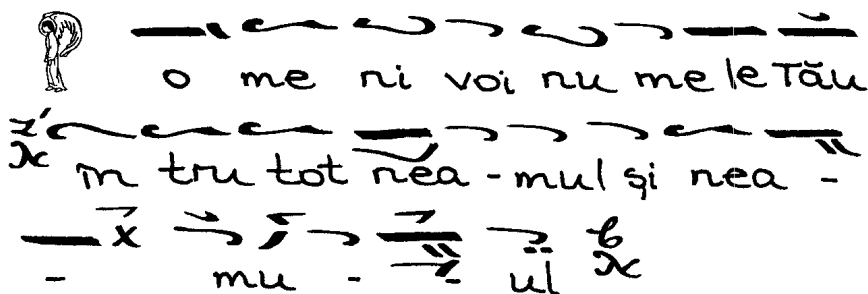 P o me ni voi nu me le Tău
în tru tot nea - mul și nea -
- mu - - ul